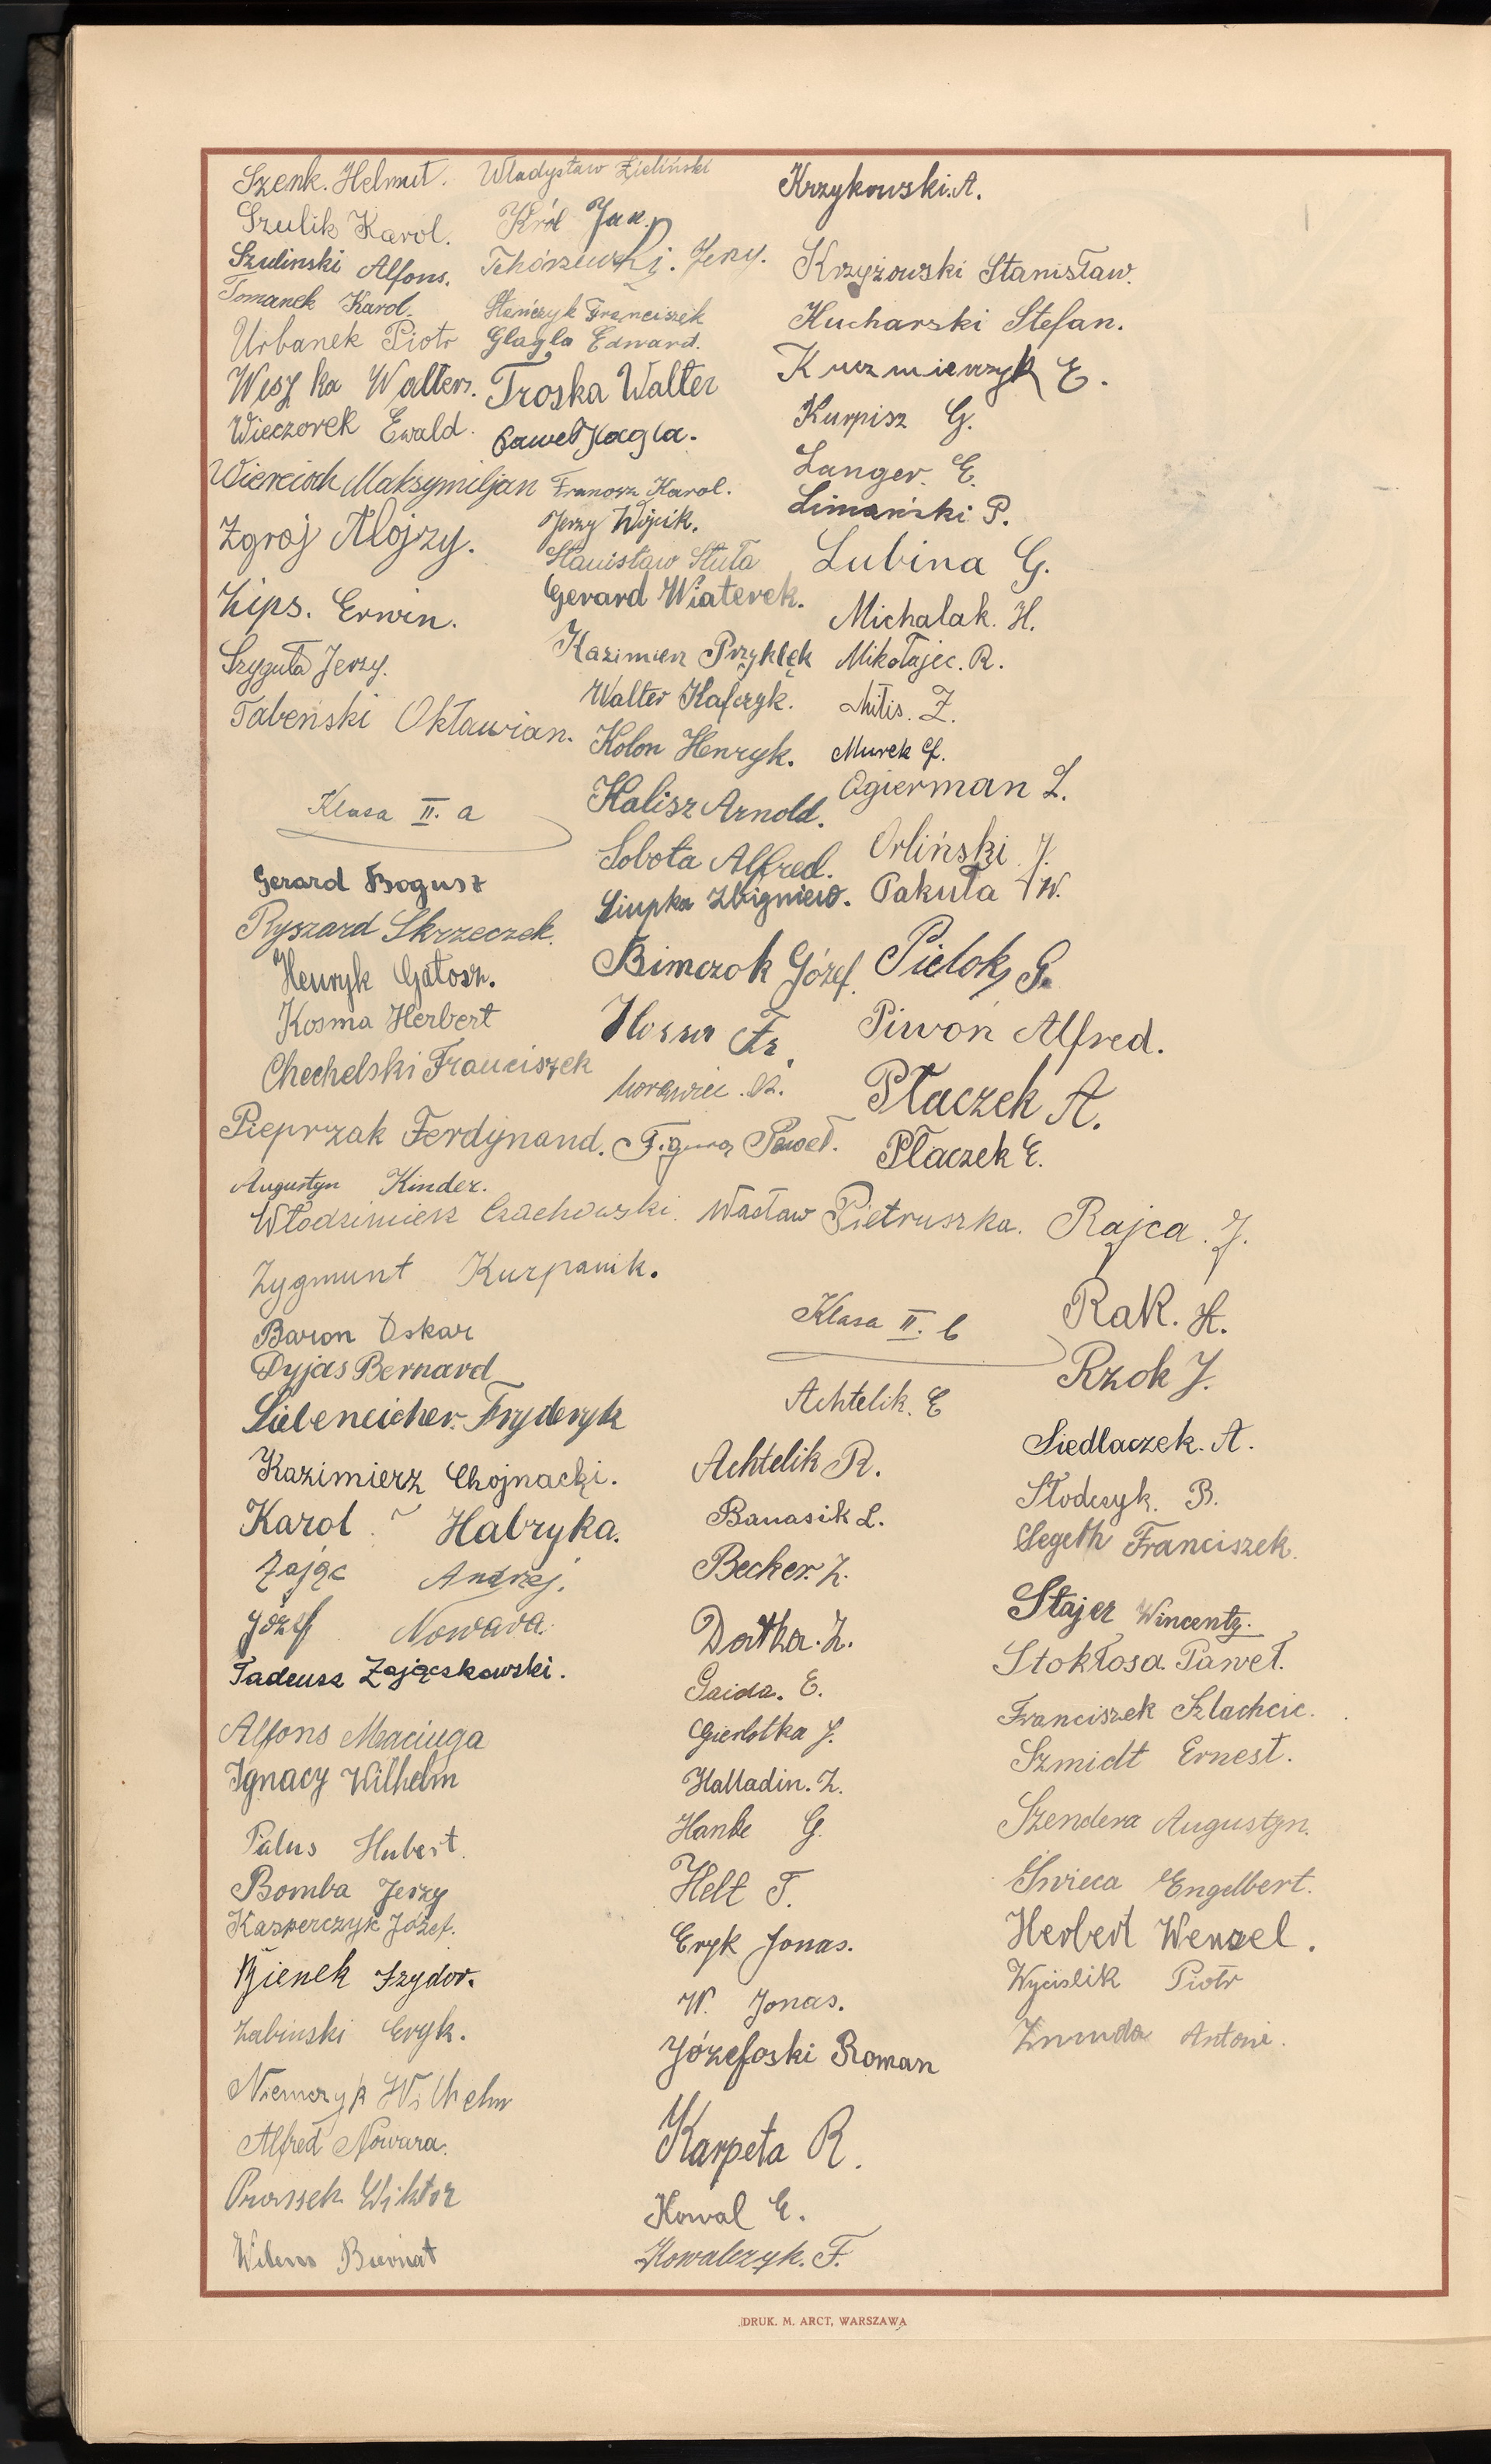 Szenk. Helmut.
Szulik Karol.
Szulinski Alfons.
Tomanek Karol.
Urbanek Piotr
Weszka Walter.
Wieczorek Ewald.
Wiercioch Maksymiljan
Zgroj Alojzy.
Zips. Erwin.
Szyguła Jerzy.
Tabeński Oktawian.
Klasa II. a
Gerard Bogusz
Ryszard Skrzeczek.
Henryk Gałosz.
Kosma Herbert
Chechelski Franciszek
Pieprzak Ferdynand.
Augustyn Kinder.
Włodzimierz Czachowski.
Zygmunt Kurpanik.
Baron Oskar
Dyjas Bernard
Liebeneicher. Fryderyk
Kazimierz Chojnacki.
Karol Habryka.
Zając Andrzej.
Józef Nowara.
Tadeusz Zajączkowski.
Alfons Maciuga
Ignacy Wilhelm
Palus Hubert.
Bomba Jerzy
Kasperczyk Józef.
Bienek Izydor.
Żabinski Eryk.
Niemczyk Wilhelm
Alfred Nowara.
Prassek Wiktor
Biernat
Władysław Zieliński
Król Jan.
Tchórzewski. Jerzy.
Stańczyk Franciszek
Glagla Edward.
Troska Walter
Paweł Kagla.
Franosz Karol.
Jerzy Wójcik.
Stanisław Stuła
Gerard Wiaterek.
Kazimierz Przyklęk
Walter Kafczyk.
Kolon Henryk.
Kalisz Arnold.
Sobota Alfred.
Siupka Zbigniew.
Bimczok Józef.
Fr.
Morawiec. R.
Figura Paweł.
Wacław Pietruszka.
Klasa II. b
Achtelik. E
Achtelik R.
Banasik L.
Becker. Z.
Datka. Z.
Gaida. E.
Gierlotka J.
Halladin. Z.
Hanke G.
Helt T.
Eryk Jonas.
W. Jonas.
Józefoski Roman
Karpeta R.
Kowal E.
Kowalczyk. F.
Krzykowski. A.
Krzyżowski Stanisław.
Kucharski Stefan.
Kuczmierczyk E.
Kurpisz G.
Langer. E.
Limański P.
Lubina G.
Michalak. H.
Mikołajec. R.
Mitis. Z.
Murek G.
Ogierman L.
Orliński J.
Pakuła W.
Pielok G.
Piwoń Alfred.
Płaczek A.
Płaczek E.
Rajca. J.
Rak. H.
Rzok J.
Siedlaczek. A.
Słodczyk. B.
Segeth Franciszek.
Stajer Wincenty.
Stokłosa Paweł.
Franciszek Szlachcic.
Szmidt Ernest.
Szendera Augustyn.
Świeca Engelbert.
Herbert Wenzel.
Wyciślik Piotr
Żmuda Antoni.
DRUK. M. ARCT, WARSZAWA